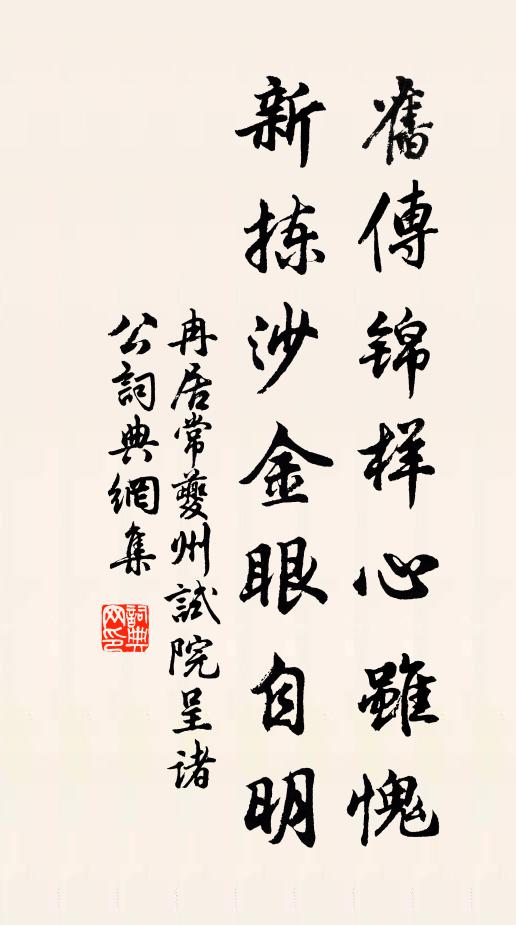 舊傳锦样心雖愧
新拣沙金眼自明
冉居常夔州試院呈诸
公詞典網集
詞典网印